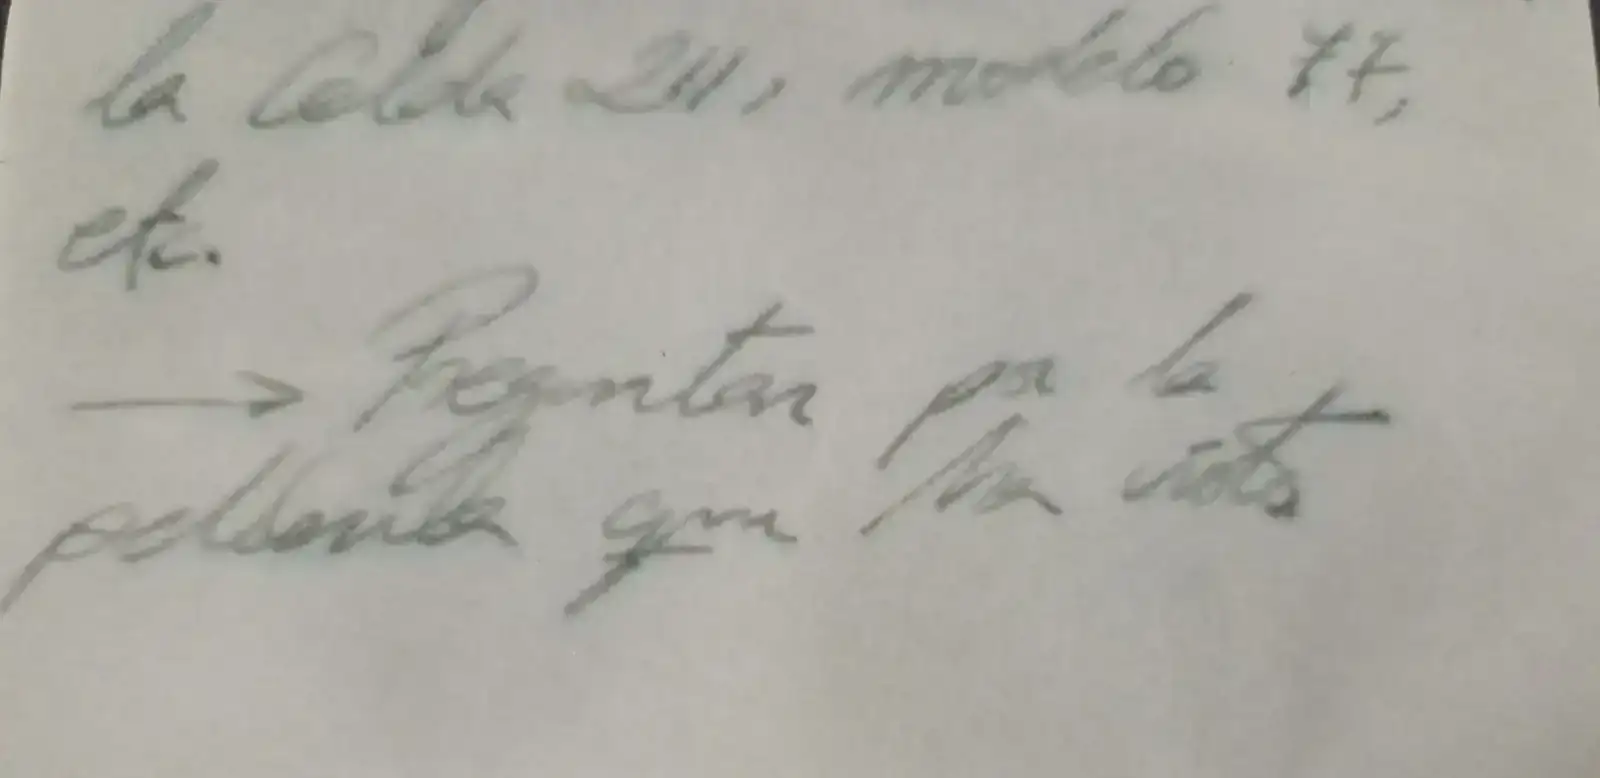 la Celda 211, modelo 77,
etc.
→ Preguntar por la
película que ha visto